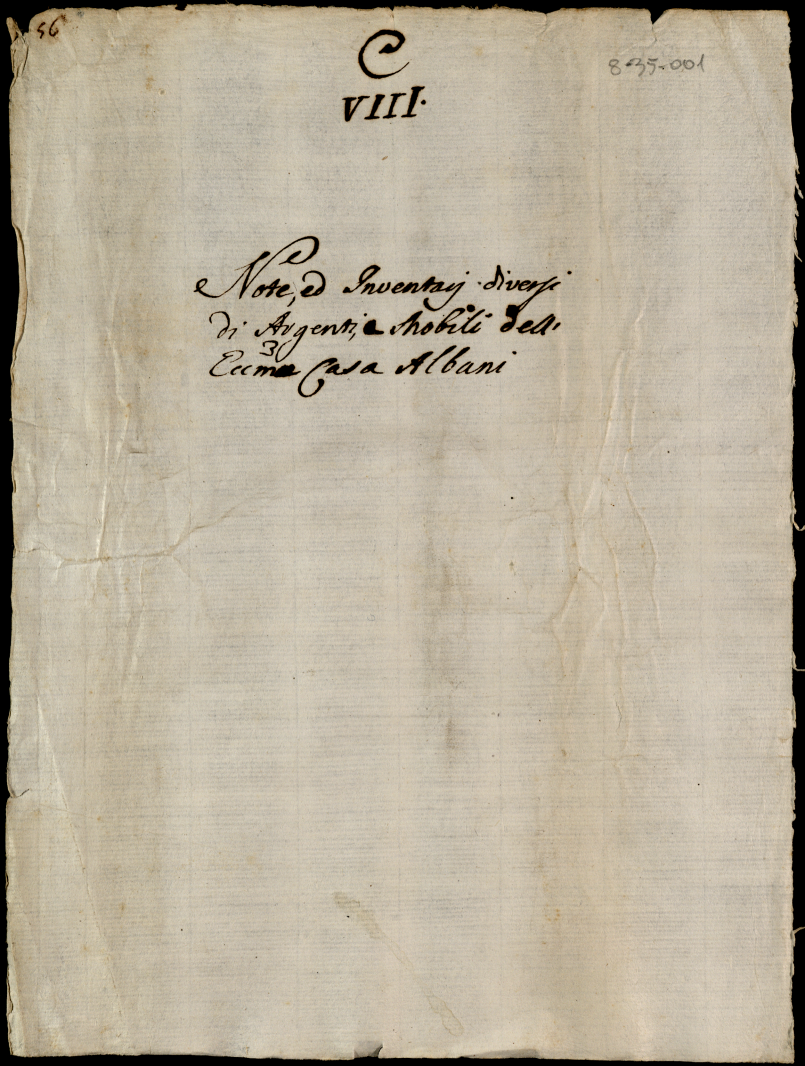 56
C
8-35-001
VIII.
Note, ed Inventarj diversi
di Argenti, e Mobili dell'
Eccma Casa Albani